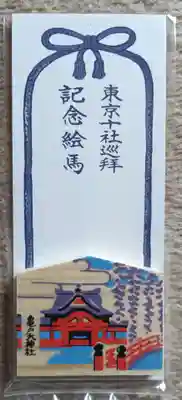 東京十社巡拝
記念絵馬
亀戸天神社